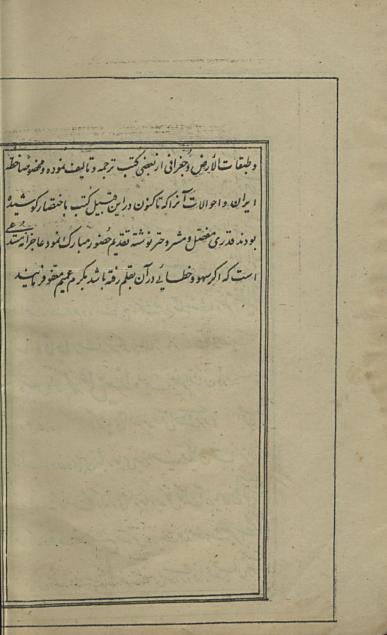 و طبقات الارض و جغرافی از بعضی کتب ترجمه و تالیف نموده و مخصوصا خطه
ایران و احوالات آنرا که تاکنون در این قبیل کتب باختصار کوشیده
بودند قدری مفصل و مشروحتر نوشته تقدیم حضور مبارک نمود عاجزانه مستدعی
است که اگر سهو و خطائی در آن بقلم رفته باشد بکرم عمیم معفو فرمایند